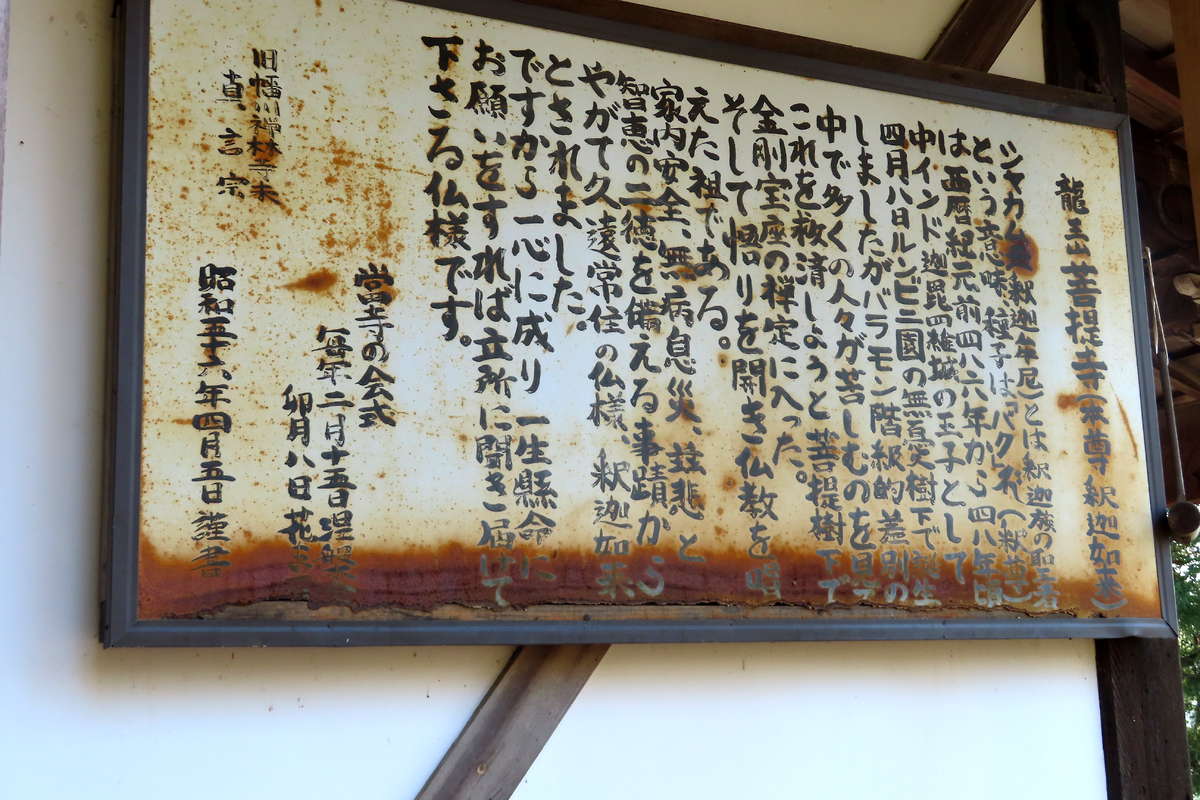 龍王山菩提寺(本尊釈迦如来)
シャカムニ(釈迦牟尼)とは釈迦族の聖者
という意味、種子はバクと(釈尊)
は西暦紀元前四八六年から四八年頃
中インド迦毘四羅城の王子として
四月八日ルンビニ園の無憂樹下で誕生
しましたがバラモン階級的差別の
中で多くの人々が苦しむのを見て
これを救済しようと菩提樹下で
金剛宝座の禅定に入った。
そして悟りを開き仏教を唱
えた祖である。
家内安全、無病息災、慈悲と
智恵の二徳を備える事蹟から
やがて久遠常住の仏様、釈迦如来
とされました。
ですから一心に成り一生懸命に
お願いをすれば立所に聞き届けて
下さる仏様です。
當寺の会式
毎年二月十五日涅槃会
卯月八日花まつり
旧幡川禅林寺末
真言宗
昭和五十六年四月五日 謹書